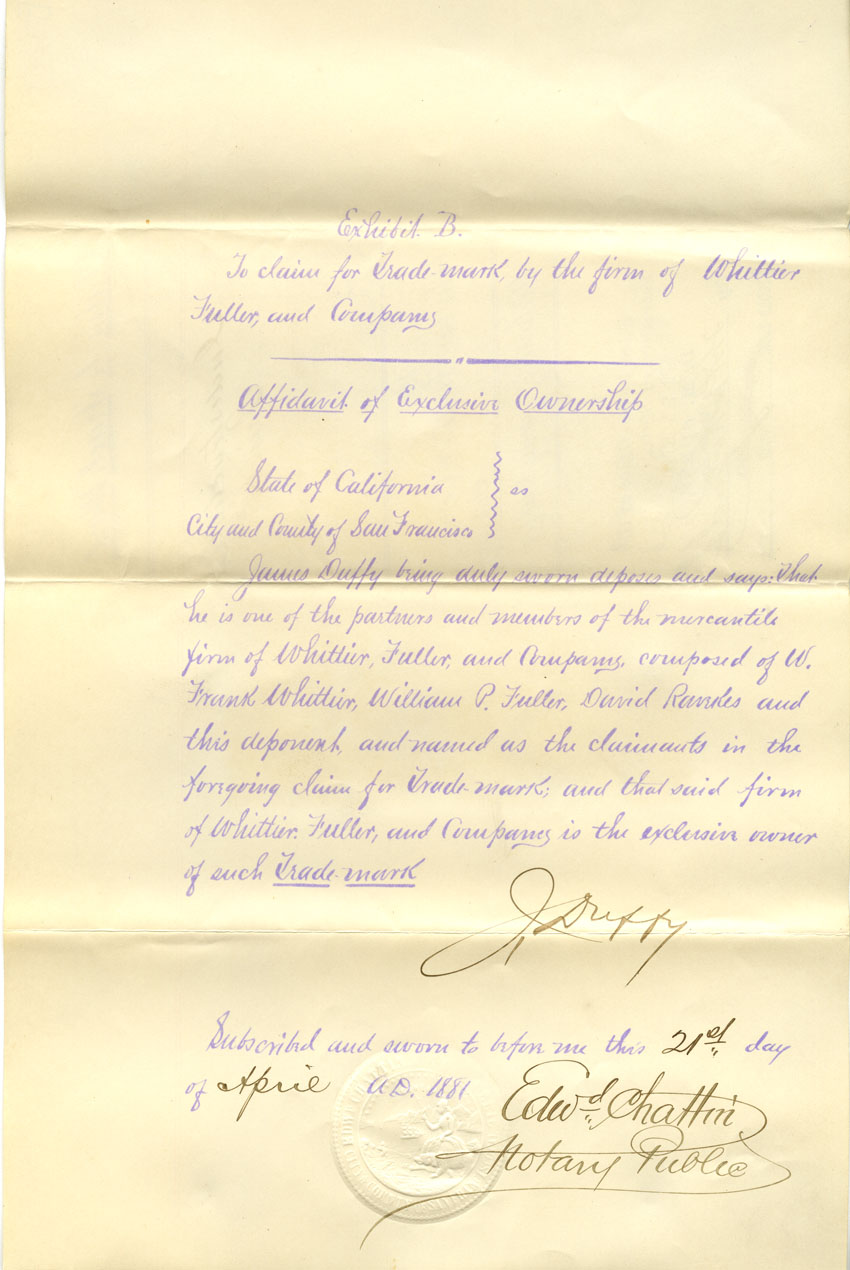 Exhibit B.
To claim for Trade-mark, by the firm of Whittier
Fuller, and Company
Affidavit of Exclusive Ownership
State of California
ss
City and County of San Francisco
James Duffy being duly sworn deposes and says: that
he is one of the partners and members of the mercantile
firm of Whittier, Fuller, and Company, composed of W.
Frank Whittier, William P. Fuller, David and
this deponent, and named as the claimants in the
foregoing claim for Trade-mark; and that said firm
of Whittier. Fuller, and Company is the exclusive owner
of such Trade-mark
J. Duffy
Subscribed and sworn to before me this 21st day
of April A.D. 1881
Edwd. Chattin
Notary Public